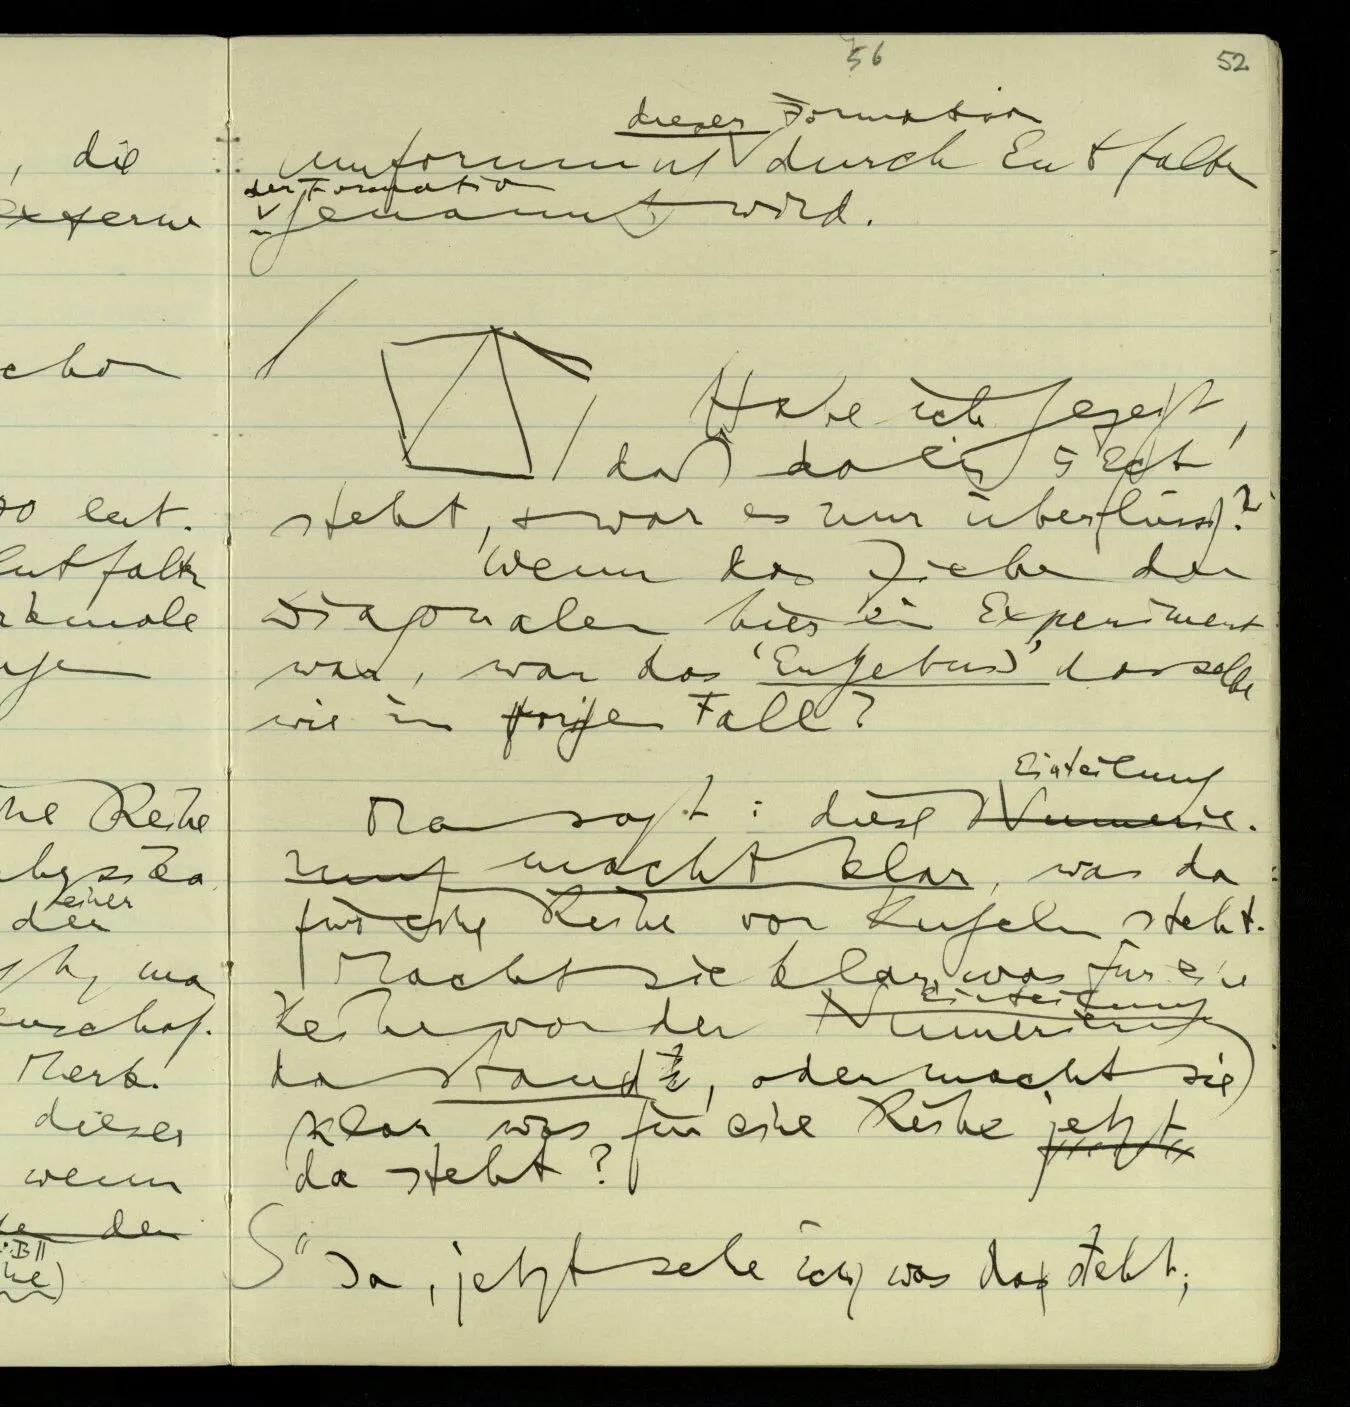 , die
externe
schon
so ent.
Entfalte
rkmale
Reihe
physika
einer
der
Merk.
dieser
wenn
der
56
52
dieser Formation
Umformung durch Entfalten
der Formation
genannt wird.
Habe ich gezeigt,
daß da ein 5 Eck
steht, & war es nur überflüssig?
Wenn das Ziehen der
Diagonalen hier ein Experiment
war, war das 'Ergebnis' dasselbe
wie im vorigen Fall?
Einteilung
Man sagt: diese Numerie-
rung macht klar, was da
für eine Reihe von Kugeln steht.
Macht sie klar, was für eine
Einteilung
Reihe vor der Numerierung
da stand, oder macht sie
klar was für eine Reihe jetzt
da steht?
S " Ja, jetzt sehe ich was da steht;